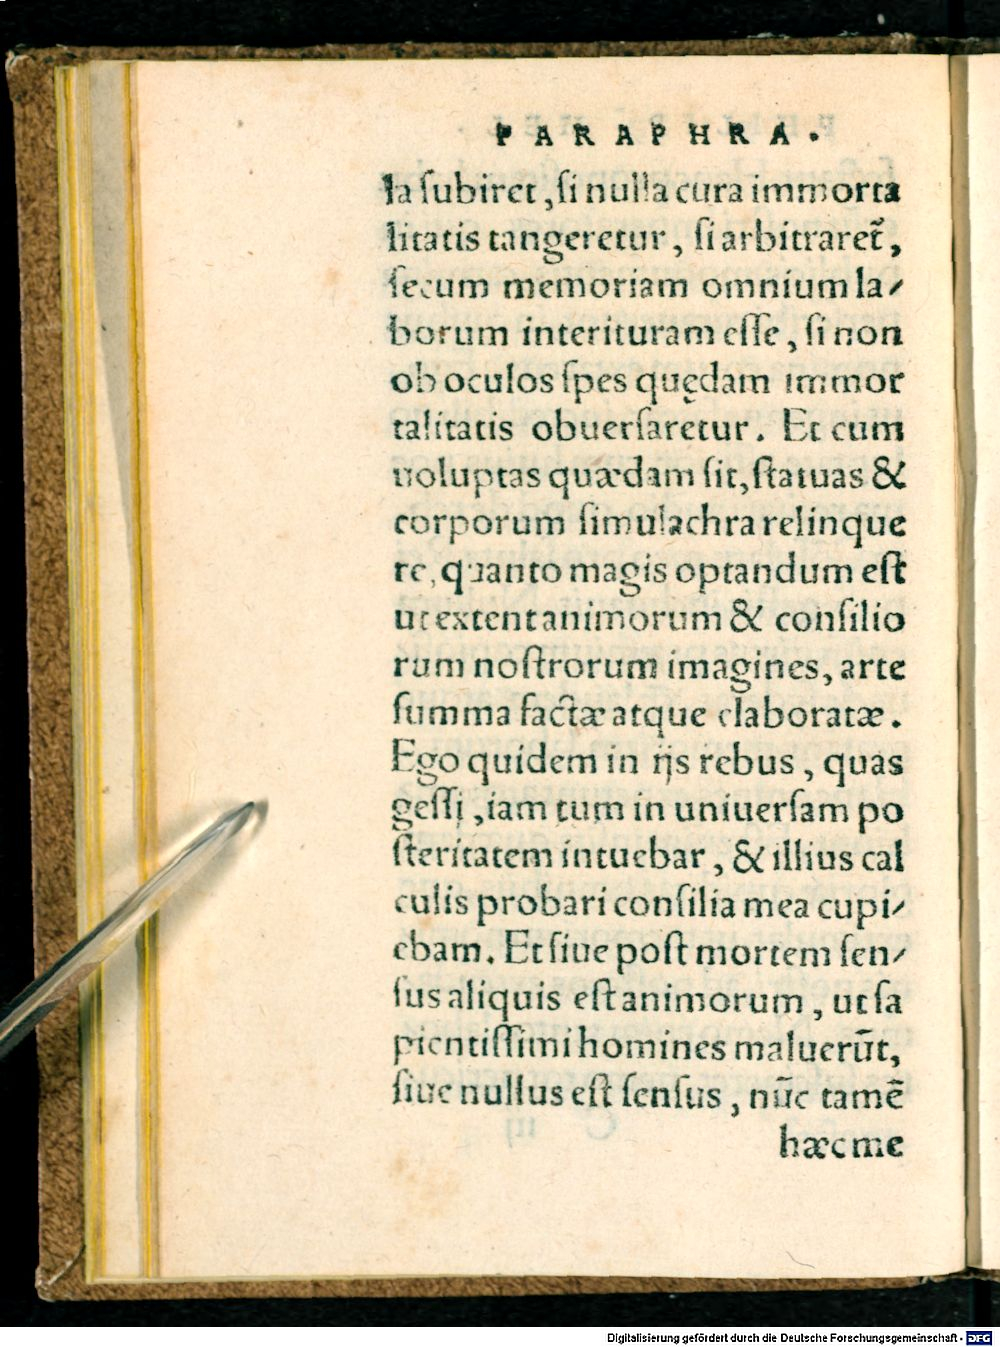 PARAPHRA.
la ſubiret, ſi nulla cura immorta
litatis tangeretur, ſi arbitraret᷑,
ſecum memoriam omnium la⸗
borum interituram eſſe, ſi non
ob oculos ſpes quędam immor
talitatis obuerſaretur. Et cum
uoluptas quædam ſit, ſtatuas &
corporum ſimulachra relinque
re, quanto magis optandum eſt
ut extent animorum & conſilio
rum noſtrorum imagines, arte
ſumma factæ atque elaboratæ.
Ego quidem in ijs rebus, quas
geſſi, iam tum in uniuerſam po
ſteritatem intuebar, & illius cal
culis probari conſilia mea cupi⸗
ebam. Et ſiue poſt mortem ſen⸗
ſus aliquis eſt animorum, ut ſa
pientiſſimi homines maluerūt,
ſiue nullus eſt ſenſus, nūc tamē
hæc me
Digitalisierung gefördert durch die Deutsche Forschungsgemeinschaft - DFG